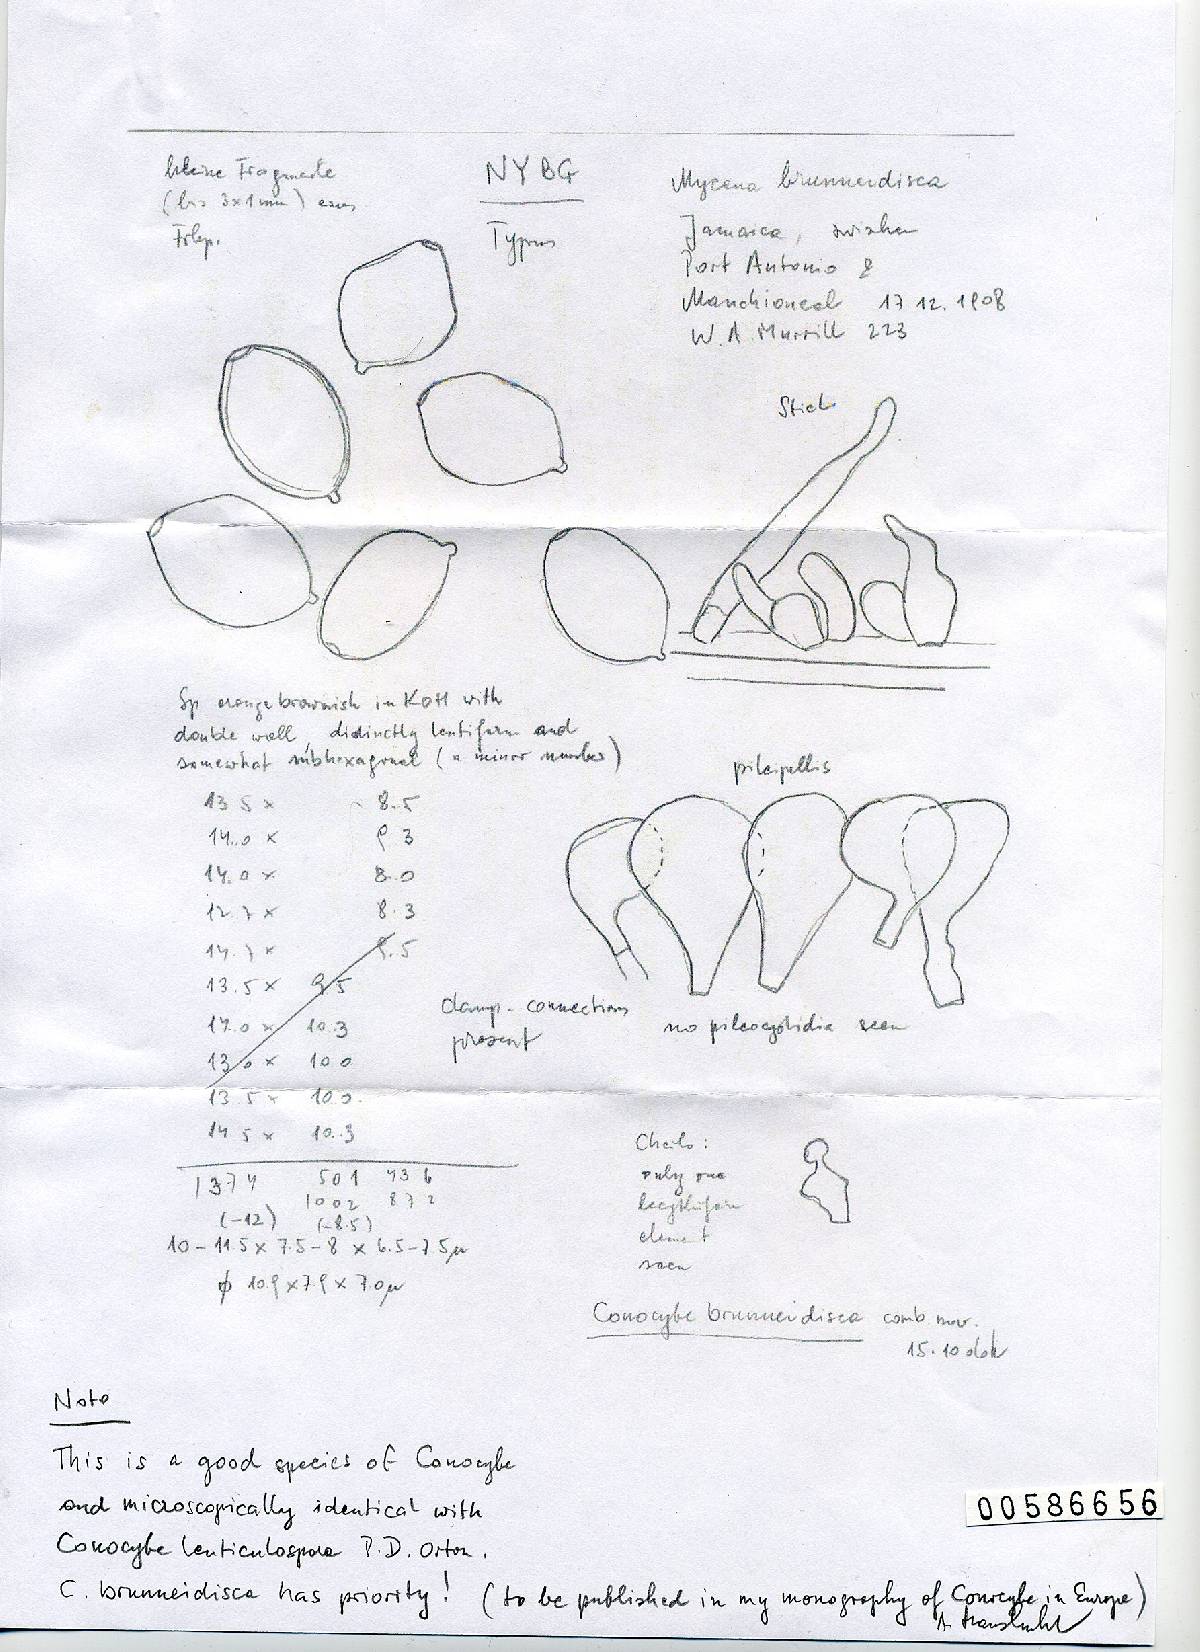 kleine Fragmente
(bis 3x1mm) eines
Frkp.
NYBG
Typus
Mycena brunneidisca
Jamaica, zwischen
Port Antonio &
Manchioneal 17 12. 1908
W.A. Murrill 223
Stiel
Sp orangebrownish in KOH with
double wall, distinctly lentiform and
somewhat subhexagonal (a minor number)
13.5 x 8.5
14.0 x 9 3
14.0 x 8.0
12.7 x 8.3
14.7 x 8.5
13.5 x 9.5
14.0 x 10.3
13.0 x 10 0
13.5 x 10.0.
14 5 x 10.3
pileipellis
clamp-connections
present
no pileocystidia seen
1374 501 436
1002 872
(-12) (-8.5)
10-11.5 x 7.5-8 x 6.5-7.5µ
ϕ 10.9 x 7.9 x 7.0µ
Cheilo:
only one
lecythiform
element
seen
Conocybe brunneidisca comb. nov.
15.10
Note
This is a good species of Conocybe
and microscopically identical with
Conocybe lenticulospora P.D. Orton.
C. brunneidisca has priority! (to be published in my monography of Conocybe in Europe)
A. Hausknecht
00586656